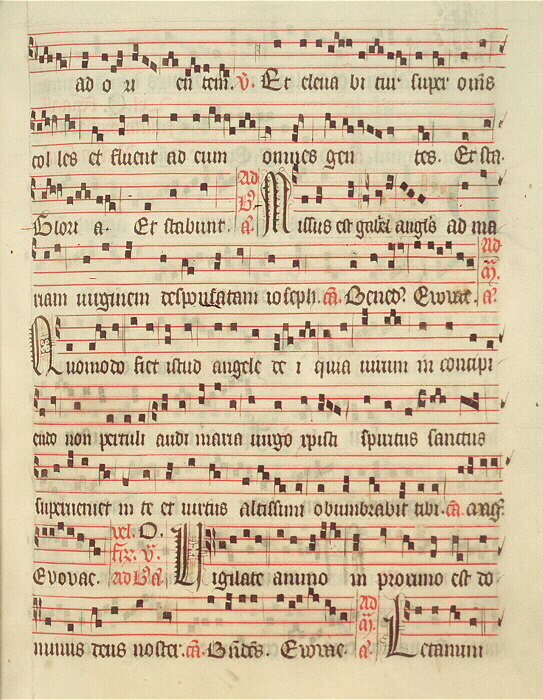 ad o ri en tem. V. Et eleva bi tur super om̄s
col les et fluent ad eum omnes gen tes. Et sta.
Glori a. Et stabunt. Ad B. a. Missus est gab̄el angl̄s ad ma
riam virginem desponsatam ioseph. ca. Bened. Evovae. Ad M. a.
Quomodo fiet istud angele de i quia virum in concipi
endo non pertuli audi maria virgo xpisti spiritus sanctus
superveniet in te et virtus altissimi obumbrabit tibi. ca.
Evovae. vel. O. V. ad B. a. Vigilate animo in proximo est do
minus deus noster. ca. Bn̄ds. Evovae. Ad M. a. Letamini